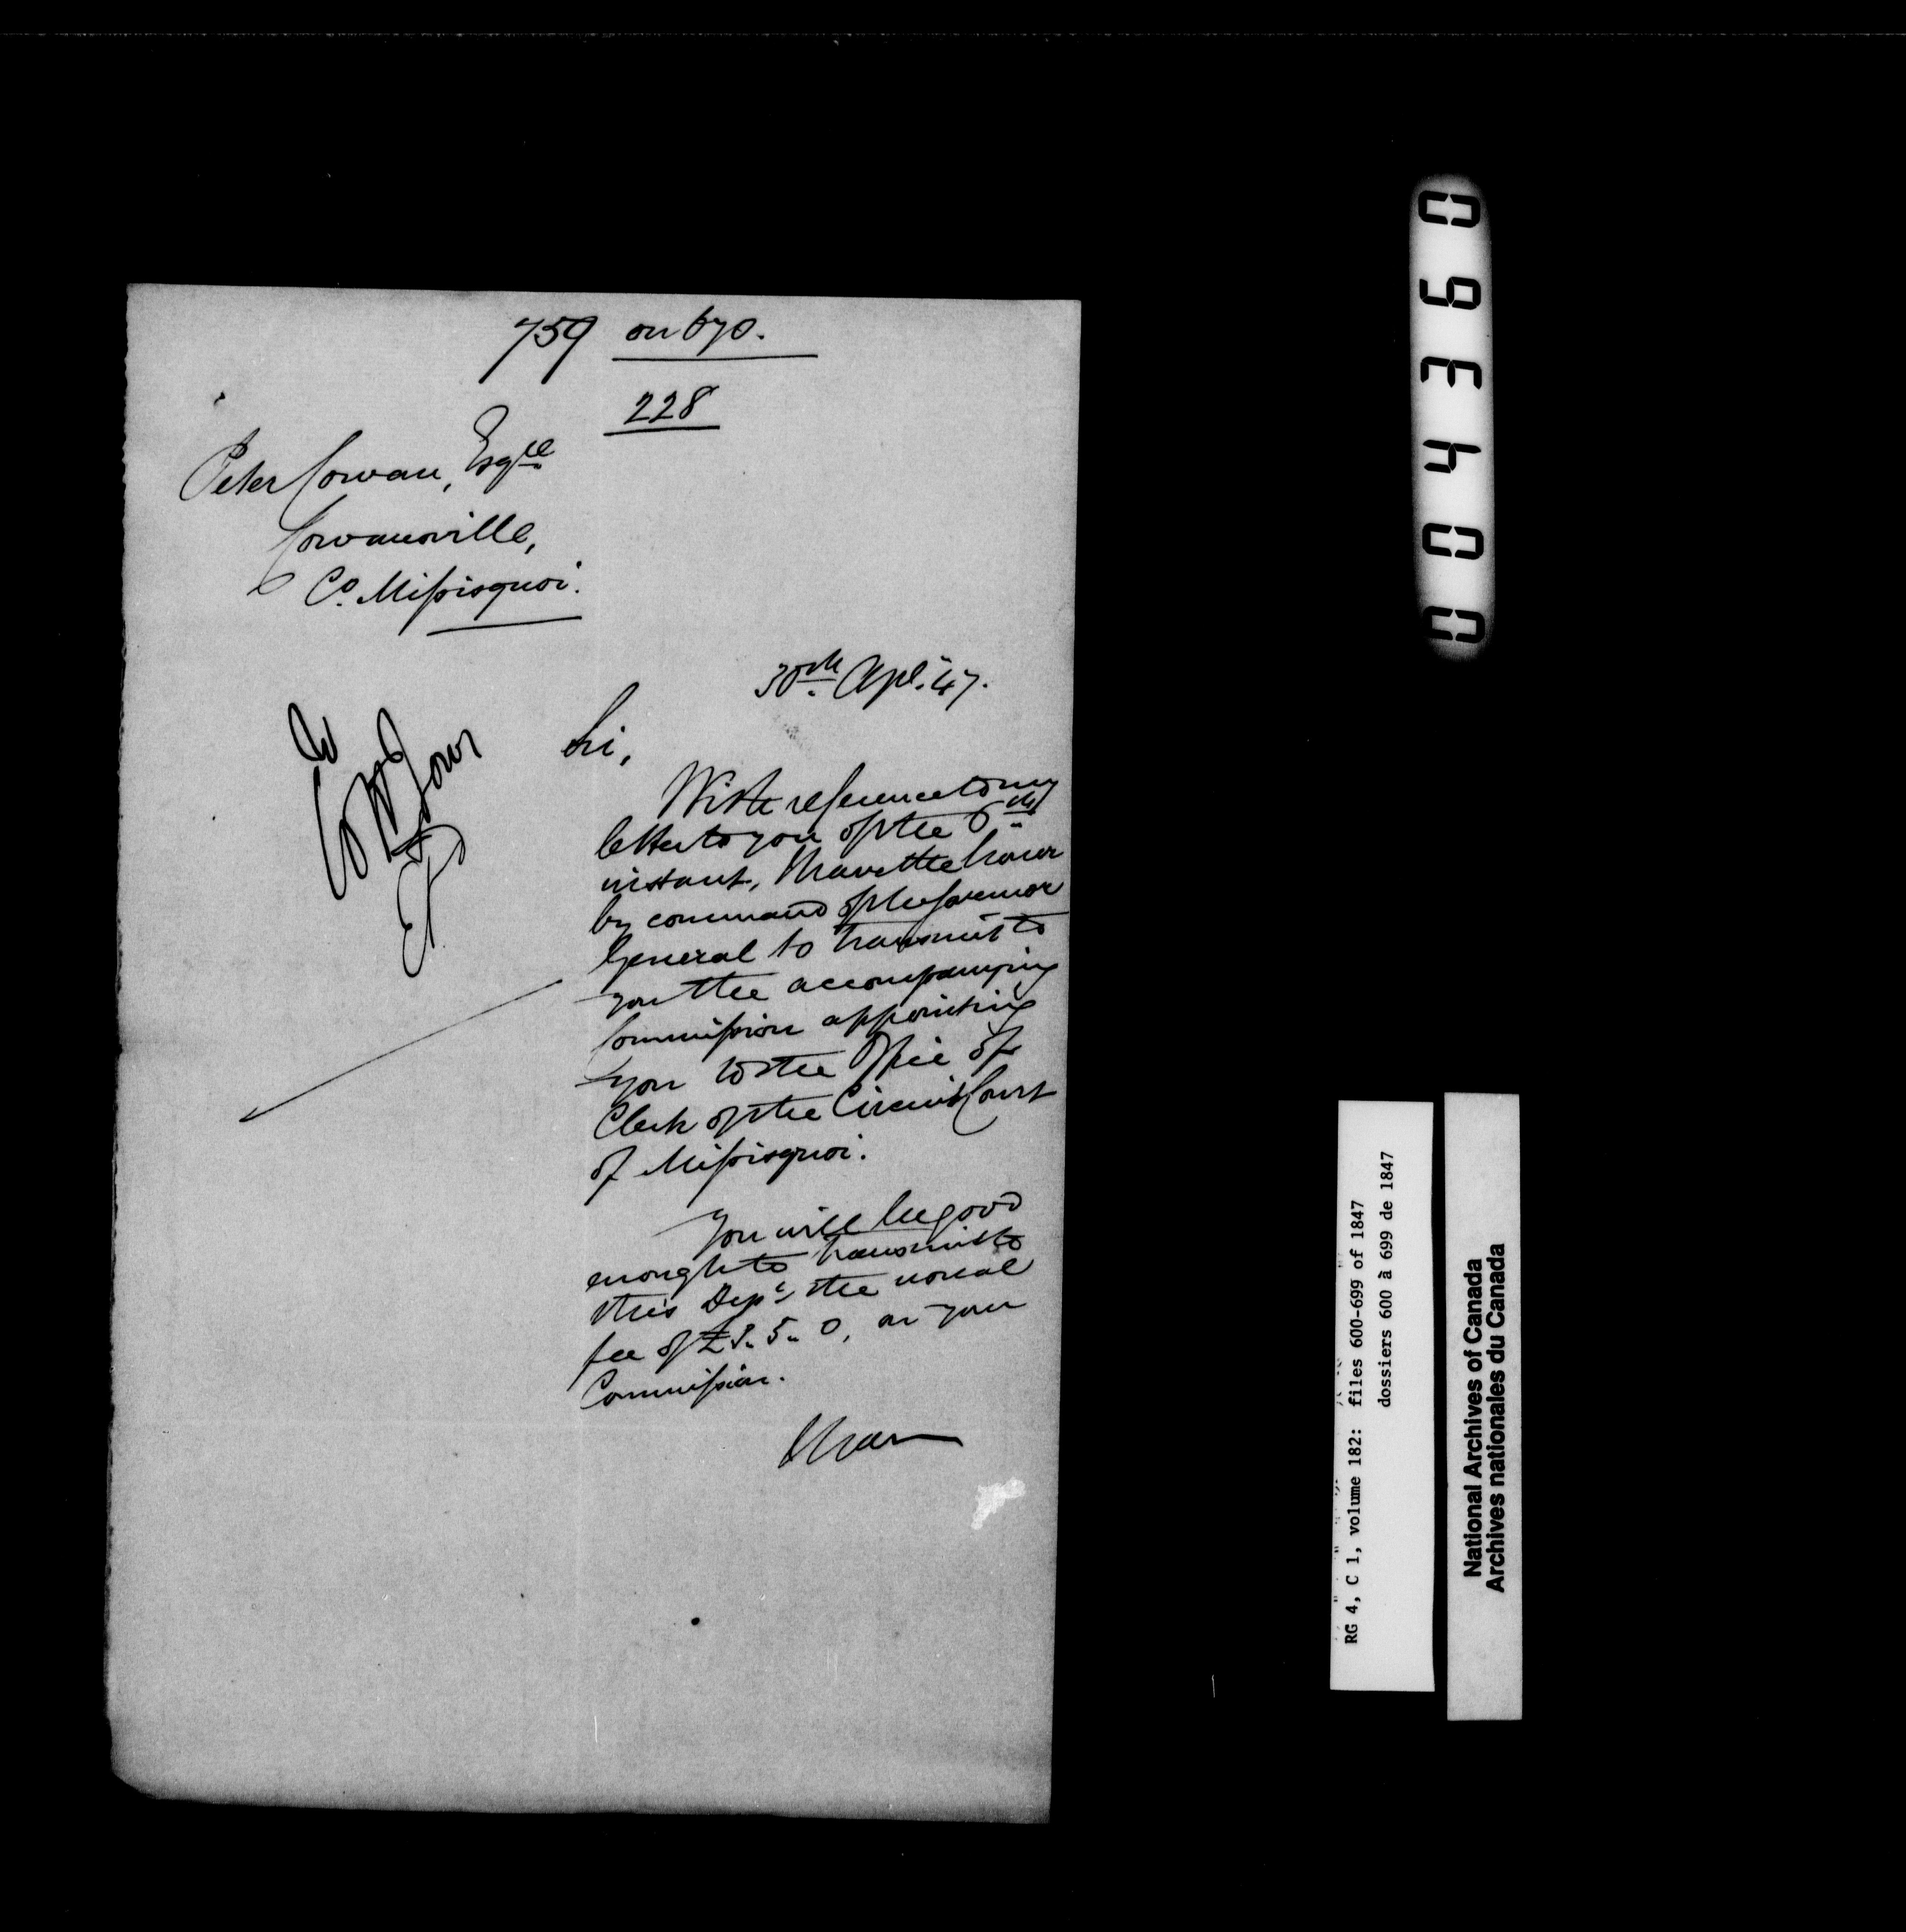 759 on 670.
228
Peter Cowan, Esqre
Cowansville,
Co. Missisquoi.
30th Apl. 47.
Sir,
With reference to my
letter to you of the 6th
instant, I have the honor
by command of the Governor
General to transmit to
you the accompanying
Commission appointing
you to the Office of
Clerk of the Circuit Court
of Missisquoi.
You will be good
enough to transmit to
this Dept. the usual
fee of £ 5. 0, on your
Commission.
I have
004360
RG 4, C 1, volume 182: files 600-699 of 1847
dossiers 600 à 699 de 1847
National Archives of Canada
Archives nationales du Canada